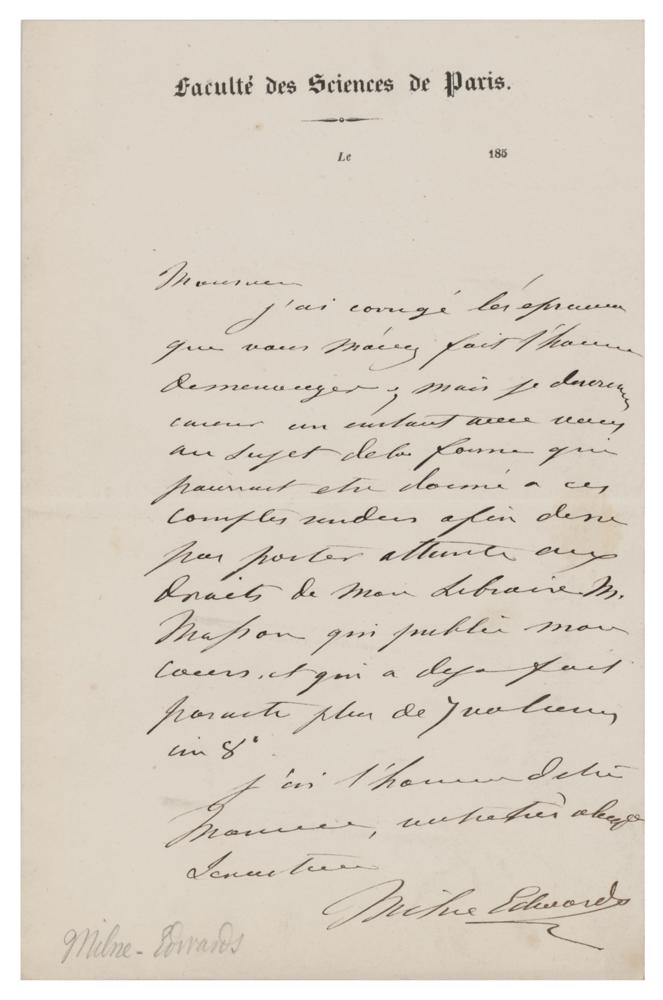 Faculté des Sciences de Paris.
Le 185
Monsieur
j'ai corrigé les épreuves
que vous m'avez fait l'honneur
de m'envoyer, mais je
causer un instant avec vous
au sujet de la forme qui
pourrait etre donné a ces
comptes rendus afin de ne
pas porter atteinte aux
droits de mon Libraire M.
Masson qui publie mon
cours, et qui a deja fait
paraitre plus de 7 volumes
in 8°
j'ai l'honneur d'etre
Monsieur, votre très obligé
Serviteur
Milne Edwards
Milne-Edwards